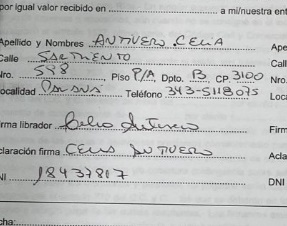 por igual valor recibido en a mi/nuestra ent
Apellido y Nombres ANTUERO CELIA Ape
Calle SARMIENTO Call
Nro. 598 Piso P/A Dpto. B CP. 3100 Nro.
Localidad PARANÁ Teléfono 343-5118075 Loca
irma librador Celia Antuero Firm
claración firma CELIA ANTUERO Acla
NI 18437817 DNI
cha: